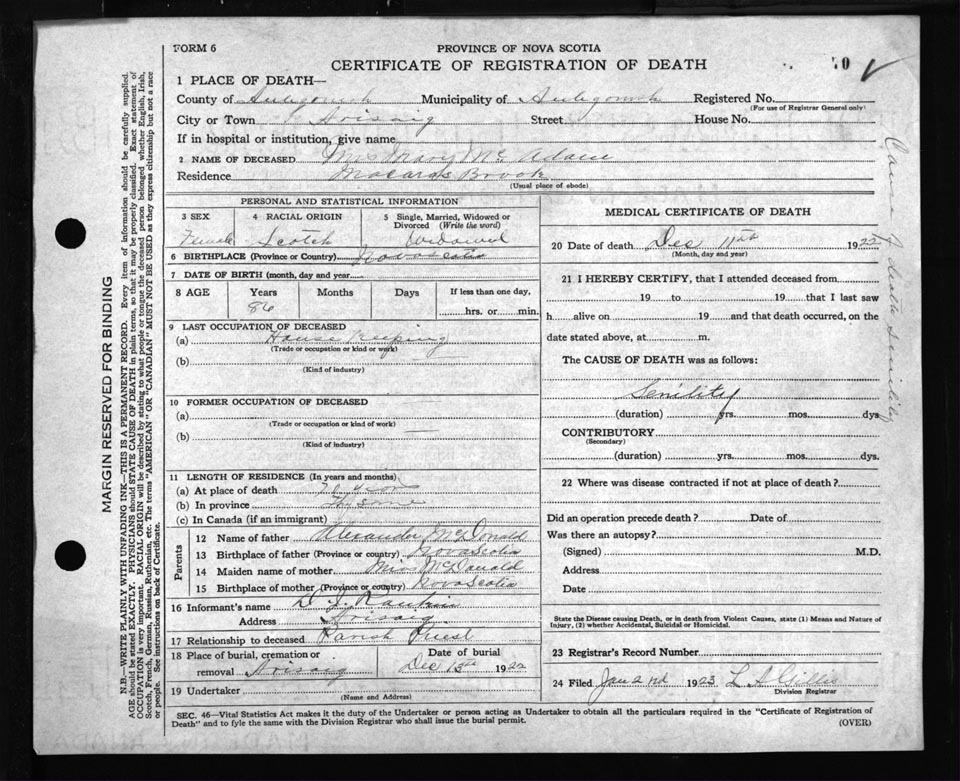 FORM 6
PROVINCE OF NOVA SCOTIA
CERTIFICATE OF REGISTRATION OF DEATH
1 PLACE OF DEATH—
County of Antigonish Municipality of Antigonish Registered No.
(For use of Registrar General only)
City or Town Arisaig Street House No.
If in hospital or institution, give name
2 NAME OF DECEASED Mrs Mary Mc Adam
Residence Malards Brook
(Usual place of abode)
PERSONAL AND STATISTICAL INFORMATION
3 SEX 4 RACIAL ORIGIN 5 Single, Married, Widowed or Divorced (Write the word)
Female Scotch Widowed
6 BIRTHPLACE (Province or Country) Nova Scotia
7 DATE OF BIRTH (month, day and year)
8 AGE Years Months Days If less than one day,
86 hrs. or min.
9 LAST OCCUPATION OF DECEASED
(a) House Keeping
(Trade or occupation or kind or work)
(b)
(Kind of industry)
10 FORMER OCCUPATION OF DECEASED
(a)
(Trade or occupation or kind of work)
(b)
(Kind of industry)
11 LENGTH OF RESIDENCE (In years and months)
(a) At place of death
(b) In province
(c) In Canada (if an immigrant)
Parents
12 Name of father Alexander McDonald
13 Birthplace of father (Province or country) Nova Scotia
14 Maiden name of mother Miss McDonald
15 Birthplace of mother (Province or country) Nova Scotia
16 Informant's name
Address Arisaig
17 Relationship to deceased Parish Priest
18 Place of burial, cremation or removal Arisaig
Date of burial
Dec 13th 1922
19 Undertaker
(Name and Address)
MEDICAL CERTIFICATE OF DEATH
20 Date of death Dec 11th 1922
(Month, day and year)
21 I HEREBY CERTIFY, that I attended deceased from
19 to 19 that I last saw
h alive on 19 and that death occurred, on the
date stated above, at m.
The CAUSE OF DEATH was as follows:
Senility
(duration) yrs. mos. dys
CONTRIBUTORY
(Secondary)
(duration) yrs. mos. dys.
22 Where was disease contracted if not at place of death?
Did an operation precede death? Date of
Was there an autopsy?
(Signed) M.D.
Address
Date
State the Disease causing Death, or in death from Violent Causes, state (1) Means and Nature of
Injury, (2) whether Accidental, Suicidal or Homicidal.
23 Registrar's Record Number
24 Filed Jan 2nd 1923 L A Gillis
Division Registrar
SEC. 46—Vital Statistics Act makes it the duty of the Undertaker or person acting as Undertaker to obtain all the particulars required in the "Certificate of Registration of
Death" and to fyle the same with the Division Registrar who shall issue the burial permit.
(OVER)
Cause of death Senility
MARGIN RESERVED FOR BINDING
N.B.—WRITE PLAINLY WITH UNFADING INK—THIS IS A PERMANENT RECORD. Every item of information should be carefully supplied.
AGE should be stated EXACTLY. PHYSICIANS should STATE CAUSE OF DEATH in plain terms, so that it may be properly classified. Exact statement of
OCCUPATION is very important. RACIAL ORIGIN will be described by stating to what people or tongue the deceased person belonged whether English, Irish,
Scotch, French, German, Russian, Ruthenian, etc. The terms "AMERICAN" OR "CANADIAN" MUST NOT BE USED as they express citizenship but not a race
or people. See instructions on back of Certificate.